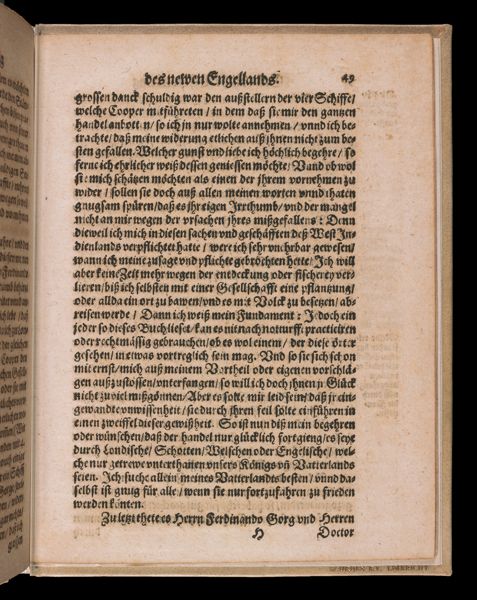 des newen Engellands. 49
grossen danck schuldig war den außstellern der vier Schiffe/
welche Cooper mitführeten / in dem daß sie mir den gantzen
handel anbotten / so ich jn nur wolte annehmen / vnnd ich be-
trachte / daß meine widerung etlichen auß jhnen nicht zum be-
sten gefallen. Welcher gunst vnd liebe ich höchlich begehre / so
ferne ich ehrlicher weiß dessen geniessen möchte / Vnd ob wol
sie mich schätzen möchten als einen der jhrem vornehmen zu
wider / sollen sie doch auß allen meinen worten vnnd thaten
gnugsam spüren / daß es jhr eigen Irrthumb / vnd der mangel
nicht an mir wegen der vrsachen jhres mißgefallens : Denn
dieweil ich mich in diesen sachen vnd geschäfften deß West In-
dienlands verpflichtet hatte / were ich sehr vnehrbar gewesen/
wann ich meine zusage vnd pflichte gebrochen hette / Ich will
aber keine Zeit mehr wegen der entdeckung oder fischerey ver-
lieren / biß ich selbsten mit einer Gesellschafft eine pflantzung/
oder allda ein ort zu bawen / vnd es mit Volck zu besetzen / ab-
reisen werde / Dann ich weiß mein Fundament : Jedoch ein
jeder so dieses Buch lieset / kan es nit nach notturfft practiciren
oder rechtmässig gebrauchen / ob es wol einem / der diese örter
gesehen / in etwas vorträglich sein mag. Vnd so sie sich schon
mit ernst / mich auß meinem Vortheil oder eigenen vorschlä-
gen außzustossen / vnterfangen / so will ich doch jhnen jr Glück
nicht zu viel mißgönnen / Aber es solte mir leid sein / daß jr ein-
gewandte vnwissenheit / sie durch jhren feil solte einführen in
einen zweiffel dieser gewißheit. So ist nun diß mein begehren
oder wünschen / daß der handel nur glücklich fortgieng / es seye
durch Londische / Schotten / Welschen oder Englische / wel-
che nur getrewe vnterthanen vnsers Königs vñ Vatterlands
seien. Ich suche allein meines Vatterlands besten / vnnd da-
selbst ist gnug für alle / wenn sie nur fortzufahren zu frieden
werden könten.
Zu letzt thete es Herrn Ferdinando Gorg vnd Herren
H Doctor